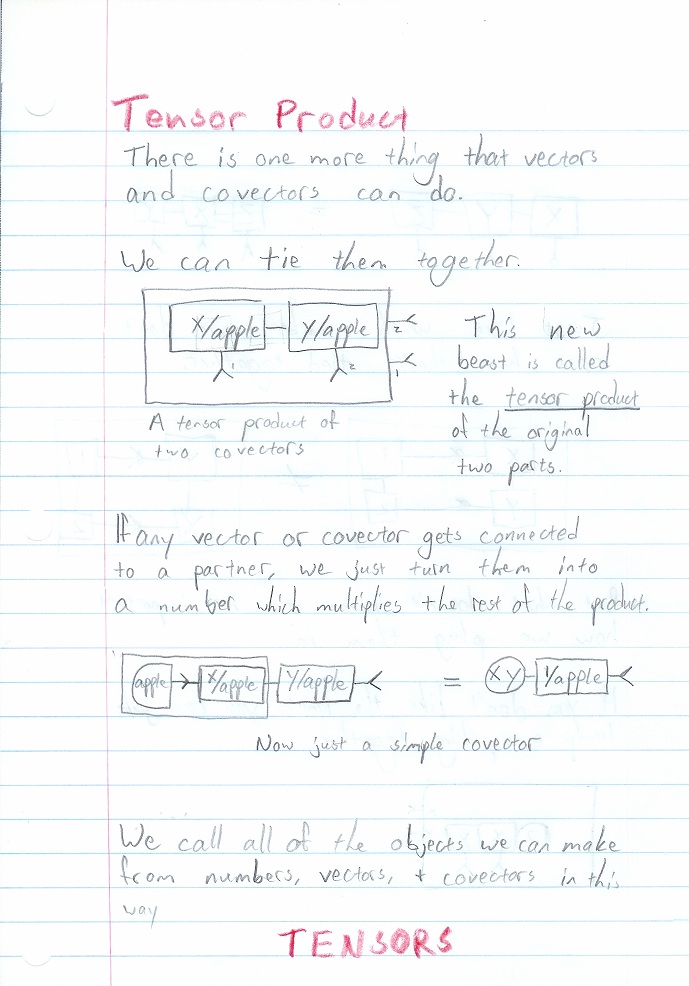 Tensor Product
There is one more thing that vectors
and covectors can do.
We can tie them together.
X/apple Y/apple 2
1 2 1
A tensor product of
two covectors
This new
beast is called
the tensor product
of the original
two parts.
If any vector or covector gets connected
to a partner, we just turn them into
a number which multiplies the rest of the product.
apple X/apple Y/apple = XY Y/apple
Now just a simple covector
We call all of the objects we can make
from numbers, vectors, + covectors in this
way
TENSORS